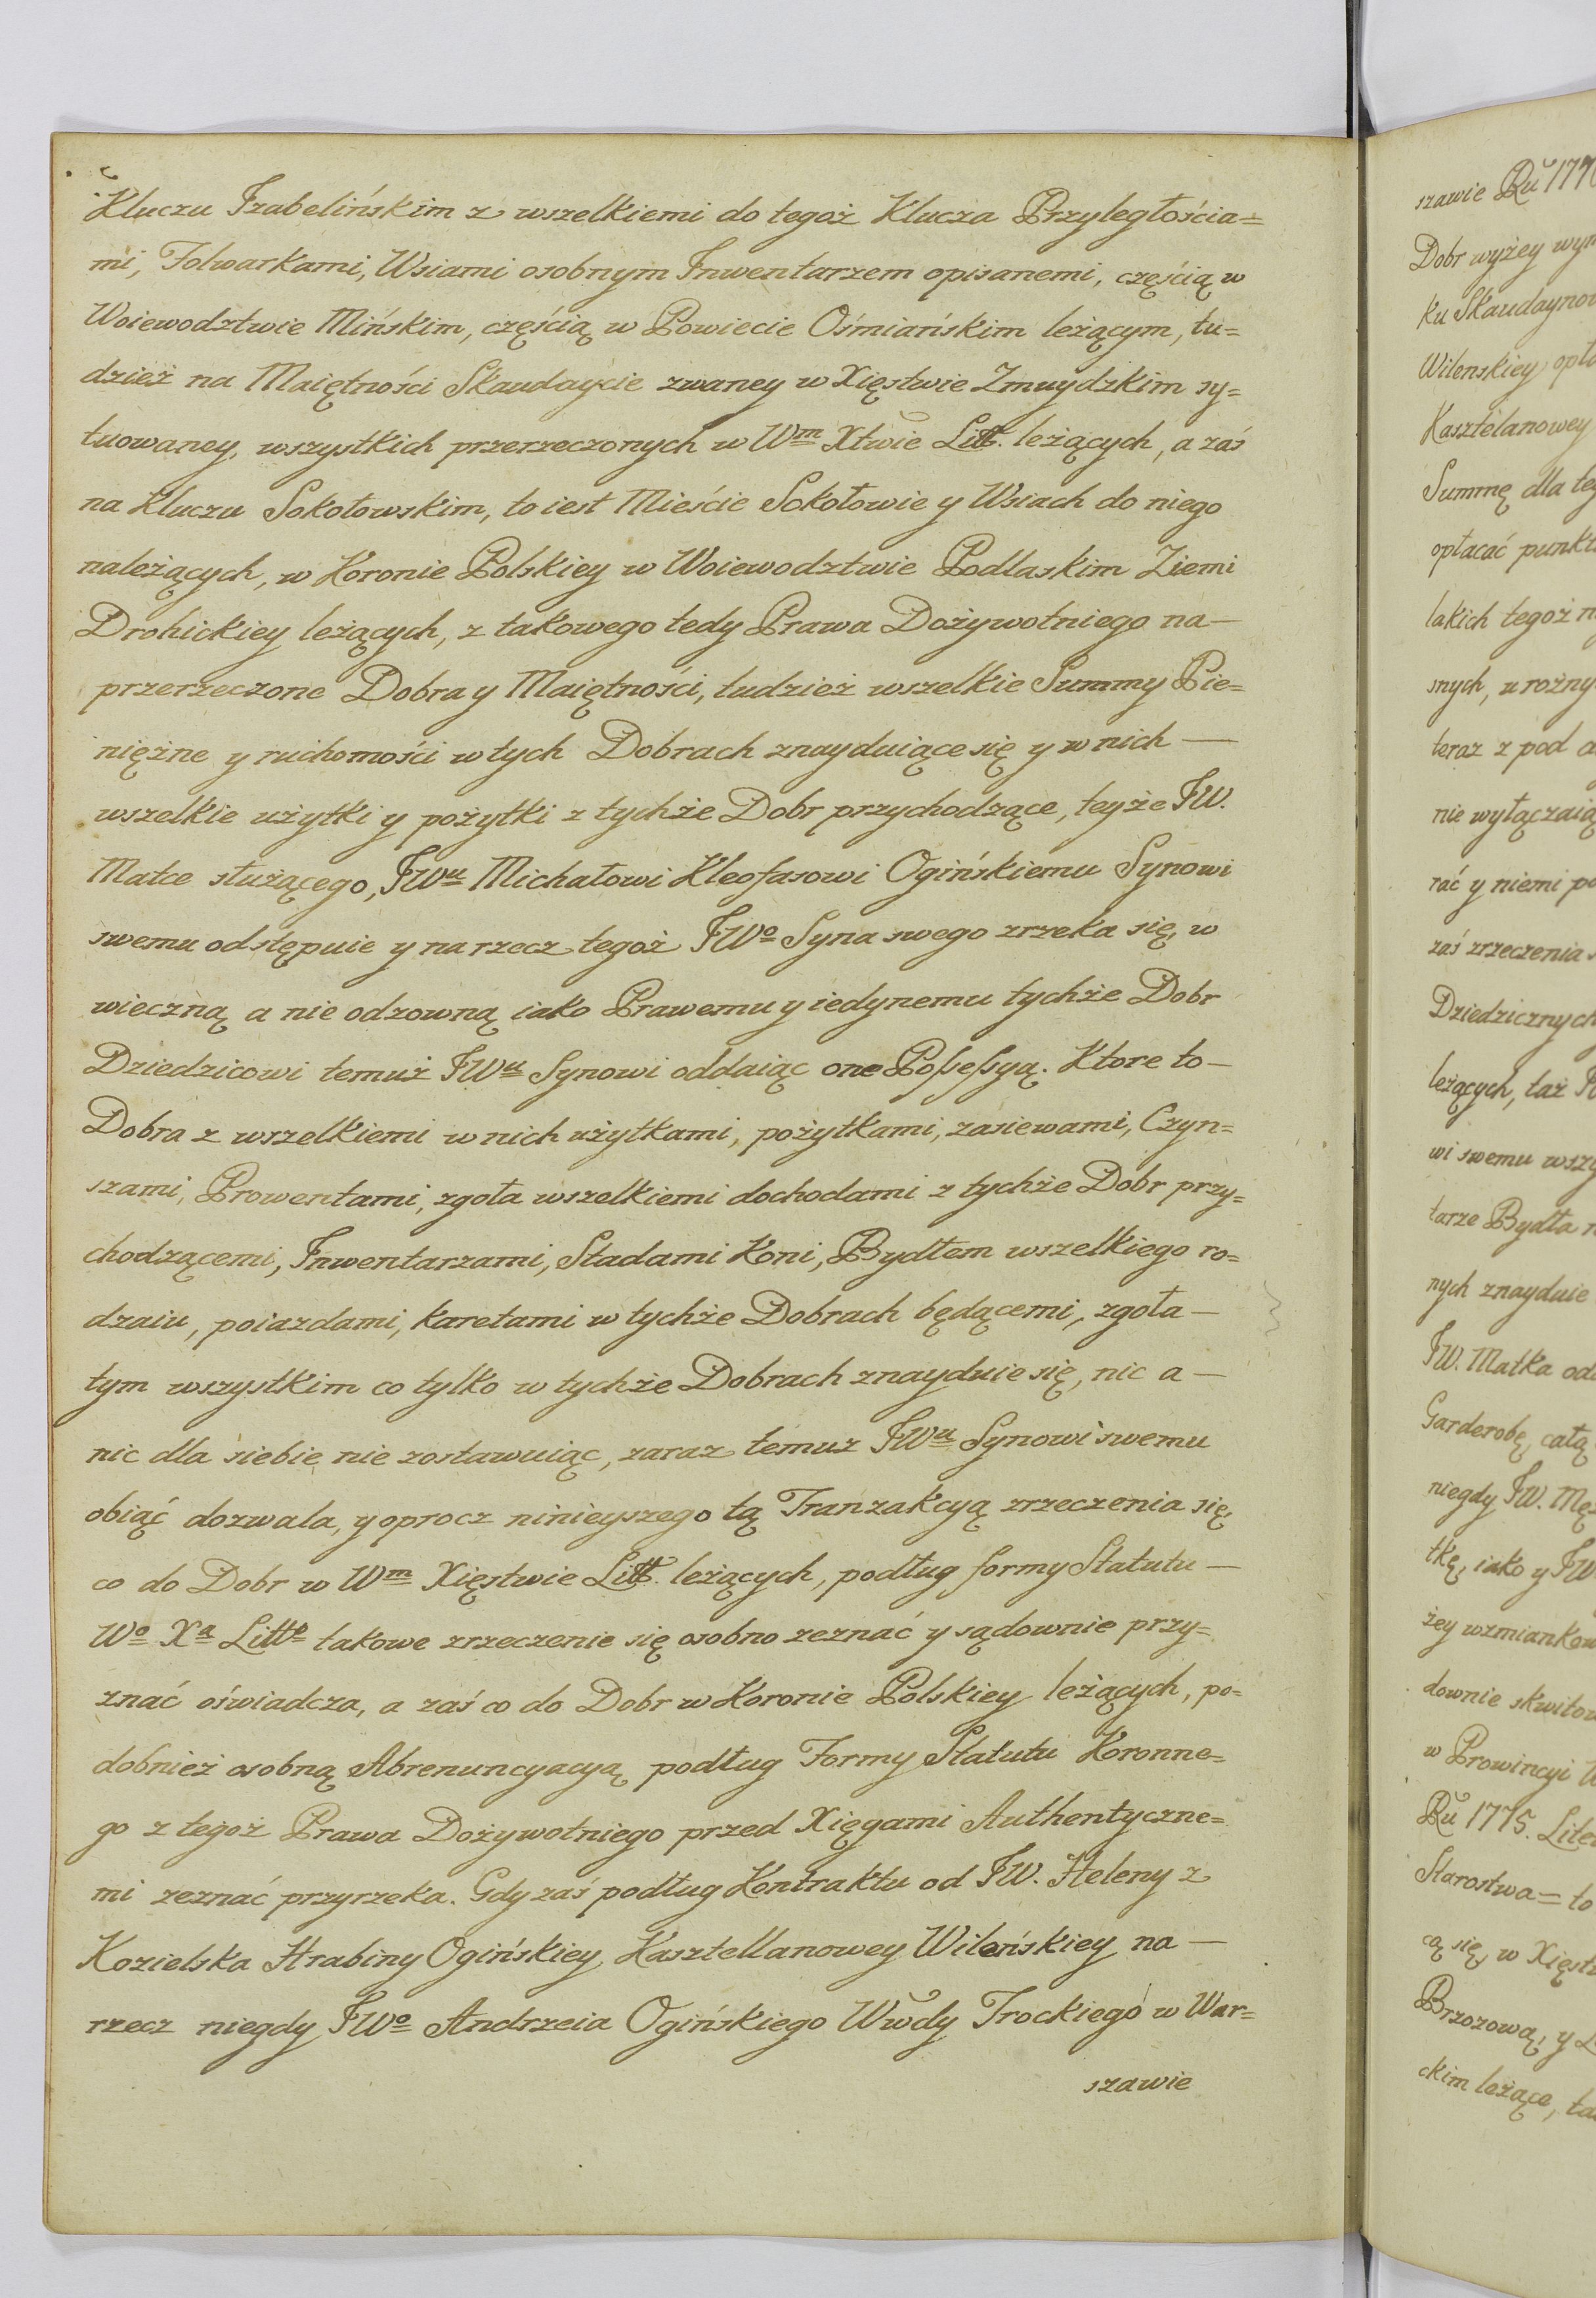 Kluczu Izabelińskim z wszelkiemi do tegoż Klucza Przyległościa=
mi, Folwarkami, Wsiami osobnym Inwentarzem opisanemi, częścią w
Woiewodztwie Mińskim, częścią w Powiecie Ośmiańskim leżącym, tu=
dzież na Maiętności Skaudaycie zwaney w Xięstwie Zmuydzkim sy=
tuowaney, wszystkich przerzeczonych w Wm Xtwie Litt. leżących, a zaś
na Kluczu Sokołowskim, to iest Mieście Sokołowie y Wsiach do niego
należących, w Koronie Polskiey w Woiewodztwie Podlaskim Ziemi
Drohickiey leżących, z takowego tedy Prawa Dożywotniego na—
przerzeczone Dobra y Maiętności, tudzież wszelkie Summy Pie=
niężne y ruchomości w tych Dobrach znayduiące się y w nich —
wszelkie użytki y pożytki z tychże Dobr przychodzące, teyże JW.
Matce służącego, JWu Michałowi Kleofasowi Ogińskiemu Synowi
swemu odstępuie y na rzecz tegoż JWo Syna swego zrzeka się, w
wieczną a nie odzowną iako Prawemu y iedynemu tychże Dobr
Dziedzicowi temuż JWu Synowi oddaiąc one Possessyą. Ktore to—
Dobra z wszelkiemi w nich użytkami, pożytkami, zasiewami, Czyn=
szami, Prowentami, zgoła wszelkiemi dochodami z tychże Dobr przy=
chodzącemi, Inwentarzami, Stadami Koni, Bydłem wszelkiego ro=
dzaiu, poiazdami, karetami w tychże Dobrach będącemi, zgoła—
tym wszystkim co tylko w tychże Dobrach znayduie się, nic a—
nic dla siebie nie zostawuiąc, zaraz temuż JWu Synowi swemu
obiąć dozwala, y oprocz ninieyszego tą Tranzakcyą zrzeczenia się,
co do Dobr w Wm Xięstwie Litt. leżących, podług formy Statutu—
Wo Xa Litto takowe zrzeczenie się osobno zeznać y sądownie przy=
znać oświadcza, a zaś co do Dobr w Koronie Polskiey leżących, po=
dobnież osobną Abrenuncyacyą podług Formy Statutu Koronne=
go z tegoż Prawa Dożywotniego przed Xięgami Authentyczne=
mi zeznać przyrzeka. Gdy zaś podług Kontraktu od JW. Heleny z
Kozielska Hrabiny Ogińskiey Kasztellanowey Wileńskiey na—
rzecz niegdy JWo Andrzeia Ogińskiego Wwdy Trockiego w War=
szawie
szawie Ru 177
Dobr wyżey wy
ku Skaudayno
Wilenskiey opł
Kasztelanowey
Summę dla te
opłacać punkt
lakich tegoż
snych, u rożny
teraz z pod
nie wyłączaią
rać y niemi po
zaś zrzeczenia
Dziedzicznych
leżących, taż
wi swemu wszy
tarze Bydła
nych znayduie
JW. Matka od
Garderobę, całą
niegdy JW. Mę
tkę, iako y JW
żey wzmiankow
downie skwitow
w Prowincyi
Ru 1775. Lite
Starostwa= to
cą się, w Xięst
Brzozową, y
ckim leżące, ta